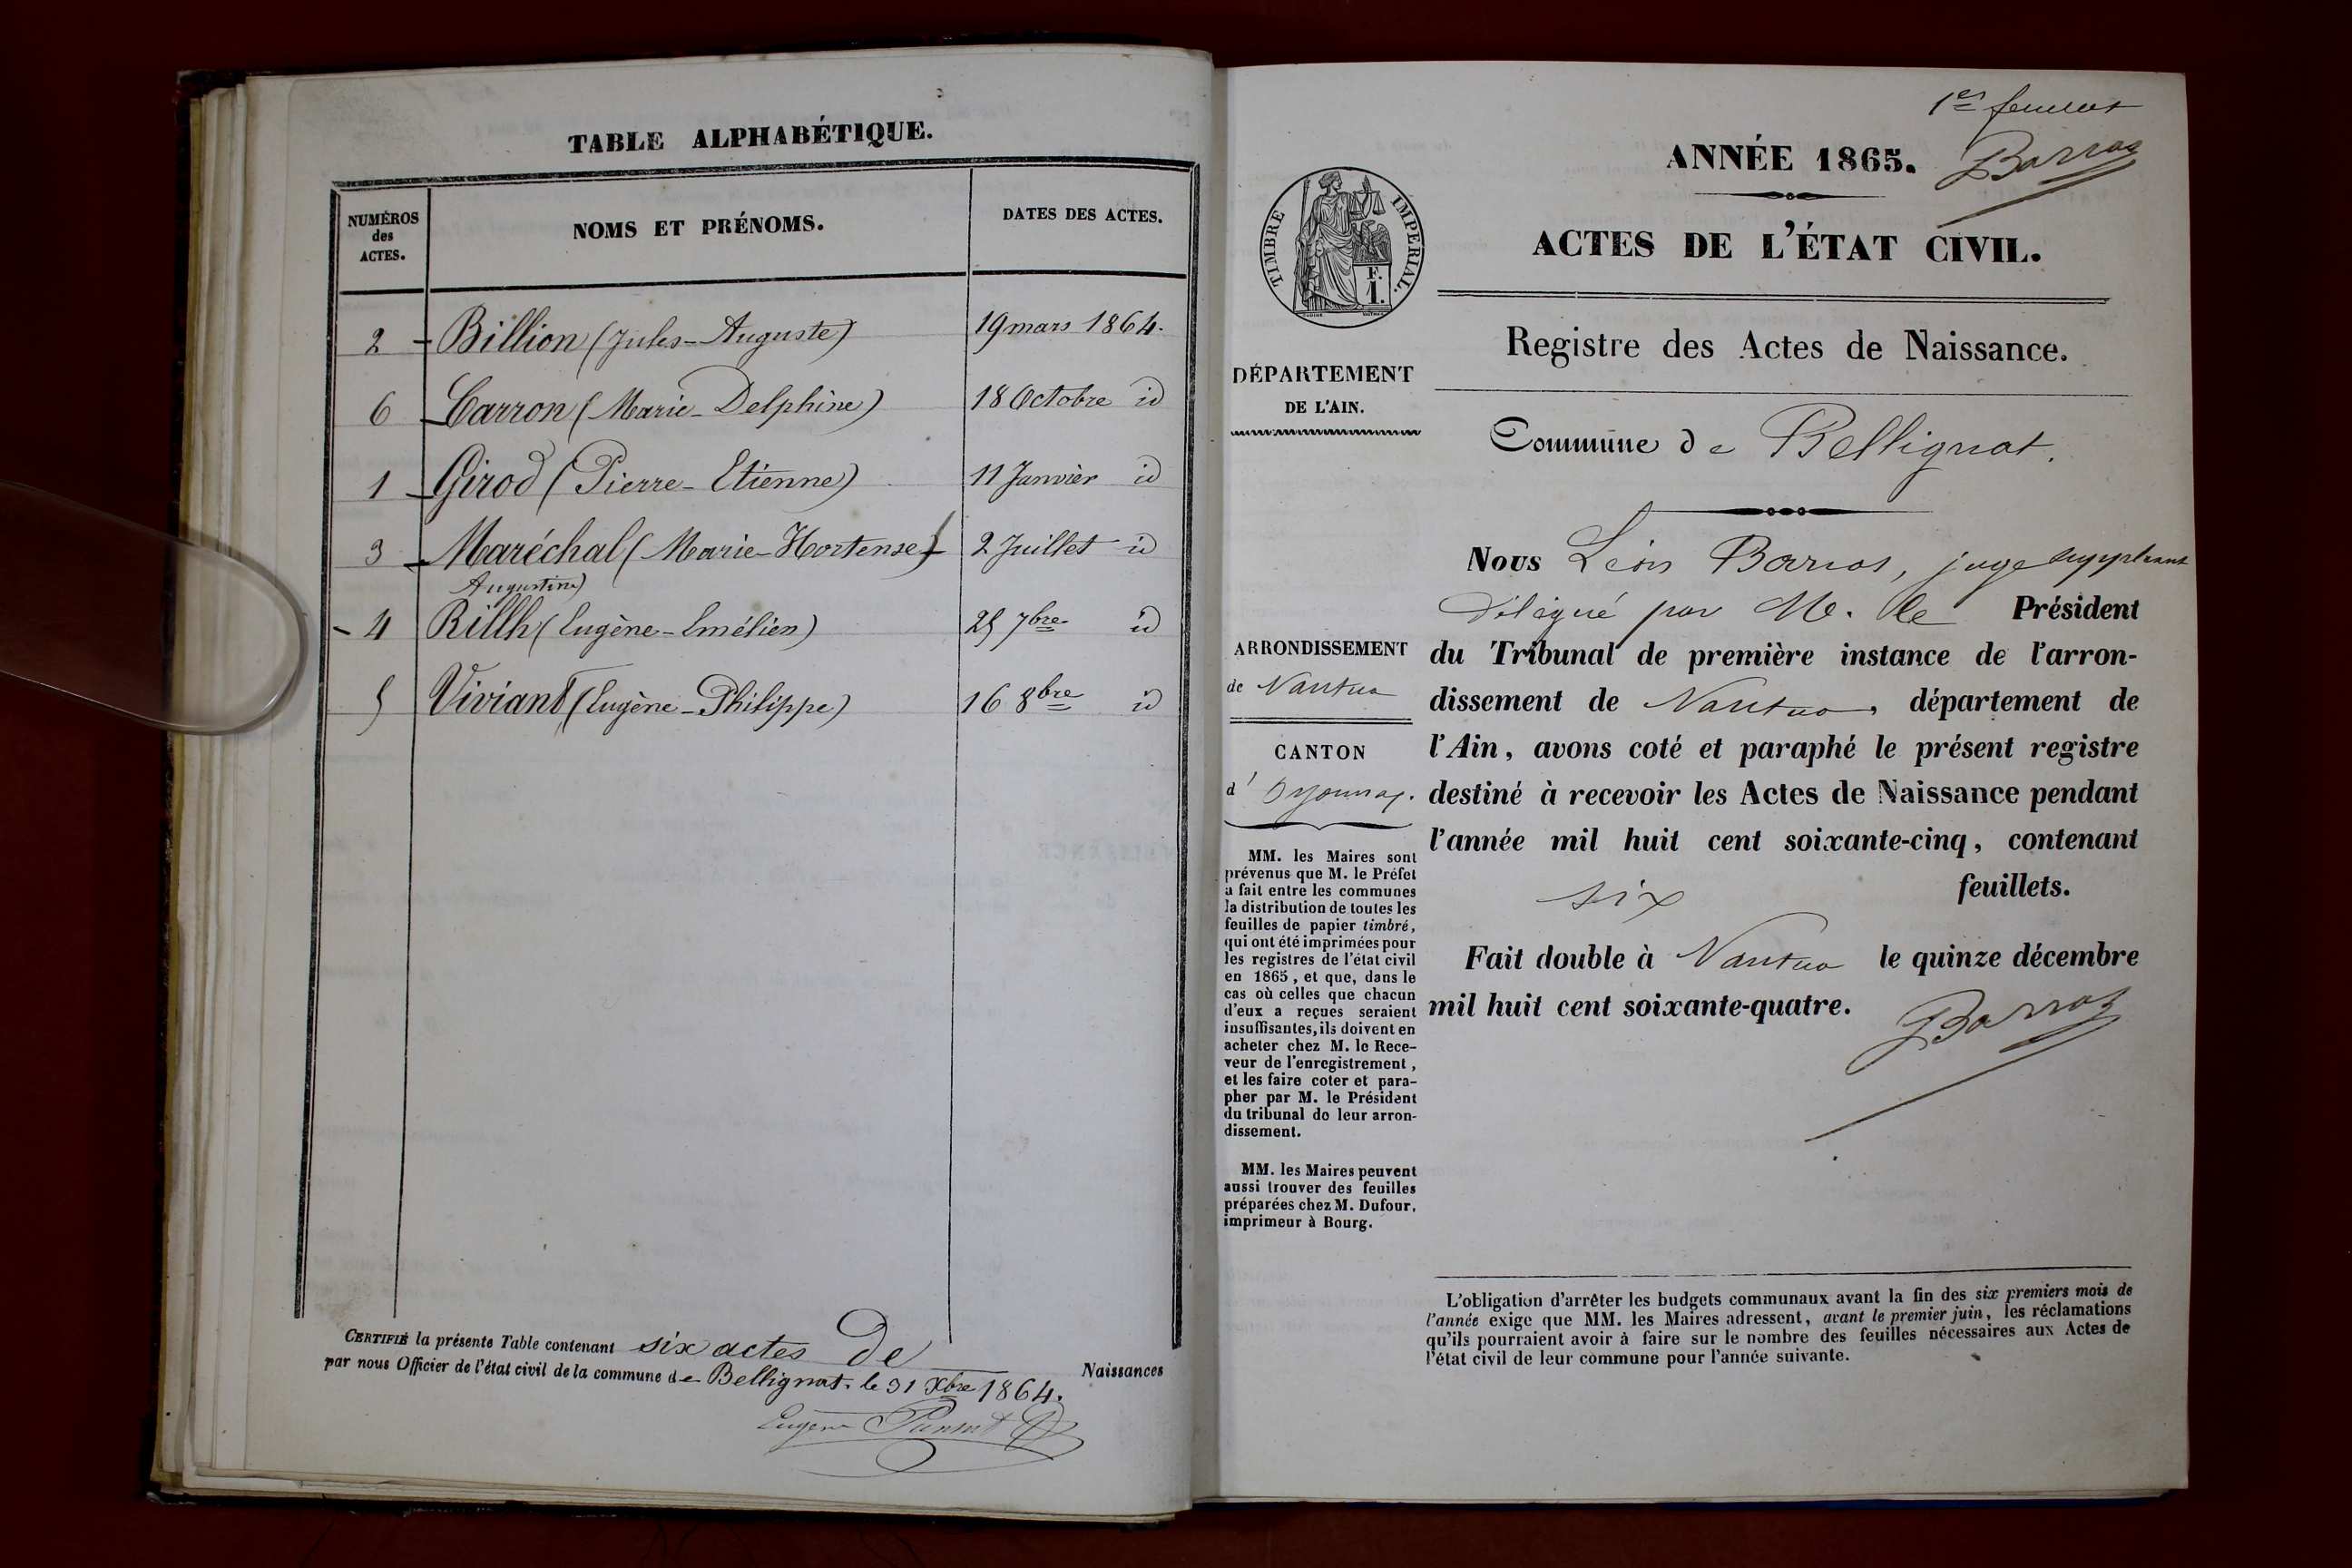 TABLE ALPHABÉTIQUE.
NUMÉROS des ACTES.
NOMS ET PRÉNOMS.
DATES DES ACTES.
2 - Billion (Jules-Auguste) 19 mars 1864.
6 Carron (Marie-Delphine) 18 Octobre id
1 - Girod (Pierre-Etienne) 11 Janvier id
3 - Maréchal (Marie-Hortense) 2 Juillet id
Augustine)
- 4 Rillh (Eugène-Emélien) 25 7bre id
5 Viviant (Eugène-Philippe) 16 8bre id
CERTIFIÉ la présente Table contenant six actes De Naissances
par nous Officier de l'état civil de la commune de Bellignat. le 31 Xbre 1864.
Eugène
1er feuillet
Barros
ANNÉE 1865.
ACTES DE L'ÉTAT CIVIL.
TIMBRE IMPÉRIAL.
F.
1.
Registre des Actes de Naissance.
DÉPARTEMENT
DE L'AIN.
Commune de Bellignat.
Nous Léon Barros, juge suppléant
délégué par M. le Président
du Tribunal de première instance de l'arron-
dissement de Nantua, département de
l'Ain, avons coté et paraphé le présent registre
destiné à recevoir les Actes de Naissance pendant
l'année mil huit cent soixante-cinq, contenant
six feuillets.
Fait double à Nantua le quinze décembre
mil huit cent soixante-quatre.
Barros
ARRONDISSEMENT
de Nantua
CANTON
d'Oyonnax.
MM. les Maires sont
prévenus que M. le Préfet
a fait entre les communes
la distribution de toutes les
feuilles de papier timbré,
qui ont été imprimées pour
les registres de l'état civil
en 1865, et que, dans le
cas où celles que chacun
d'eux a reçues seraient
insuffisantes, ils doivent en
acheter chez M. le Rece-
veur de l'enregistrement,
et les faire coter et para-
pher par M. le Président
du tribunal de leur arron-
dissement.
MM. les Maires peuvent
aussi trouver des feuilles
préparées chez M. Dufour,
imprimeur à Bourg.
L'obligation d'arrêter les budgets communaux avant la fin des six premiers mois de
l'année exige que MM. les Maires adressent, avant le premier juin, les réclamations
qu'ils pourraient avoir à faire sur le nombre des feuilles nécessaires aux Actes de
l'état civil de leur commune pour l'année suivante.